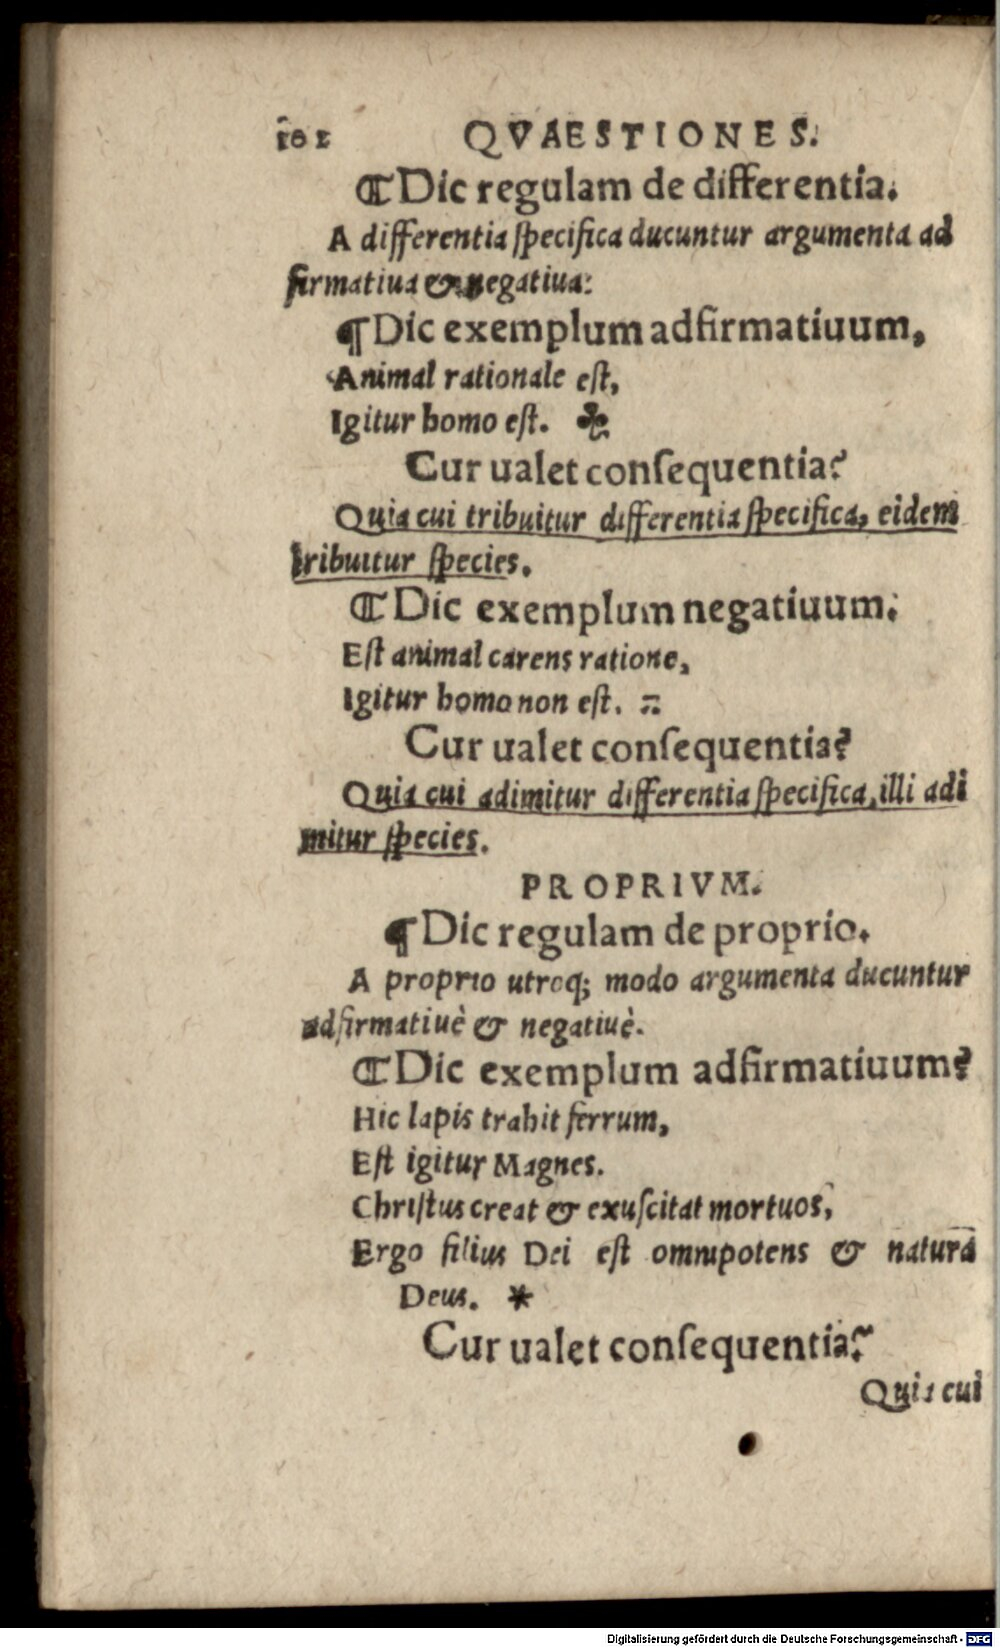 102 QVAESTIONES.
¶Dic regulam de differentia.
A differentia specifica ducuntur argumenta ad
firmatiua & negatiua:
¶Dic exemplum adfirmatiuum,
Animal rationale est,
Igitur homo est. ☙
Cur ualet consequentia?
Quia cui tribuitur differentia specifica, eidem
tribuitur species.
¶Dic exemplum negatiuum.
Est animal carens ratione,
Igitur homo non est.
Cur ualet consequentia?
Quia cui adimitur differentia specifica, illi adi
mitur species.
PROPRIVM.
¶Dic regulam de proprio.
A proprio utroq; modo argumenta ducuntur
adfirmatiuè & negatiuè.
¶Dic exemplum adfirmatiuum?
Hic lapis trahit ferrum,
Est igitur Magnes.
Christus creat & exuscitat mortuos,
Ergo filius Dei est omnipotens & natura
Deus. *
Cur ualet consequentia?
Quia cui
Digitalisierung gefördert durch die Deutsche Forschungsgemeinschaft - DFG